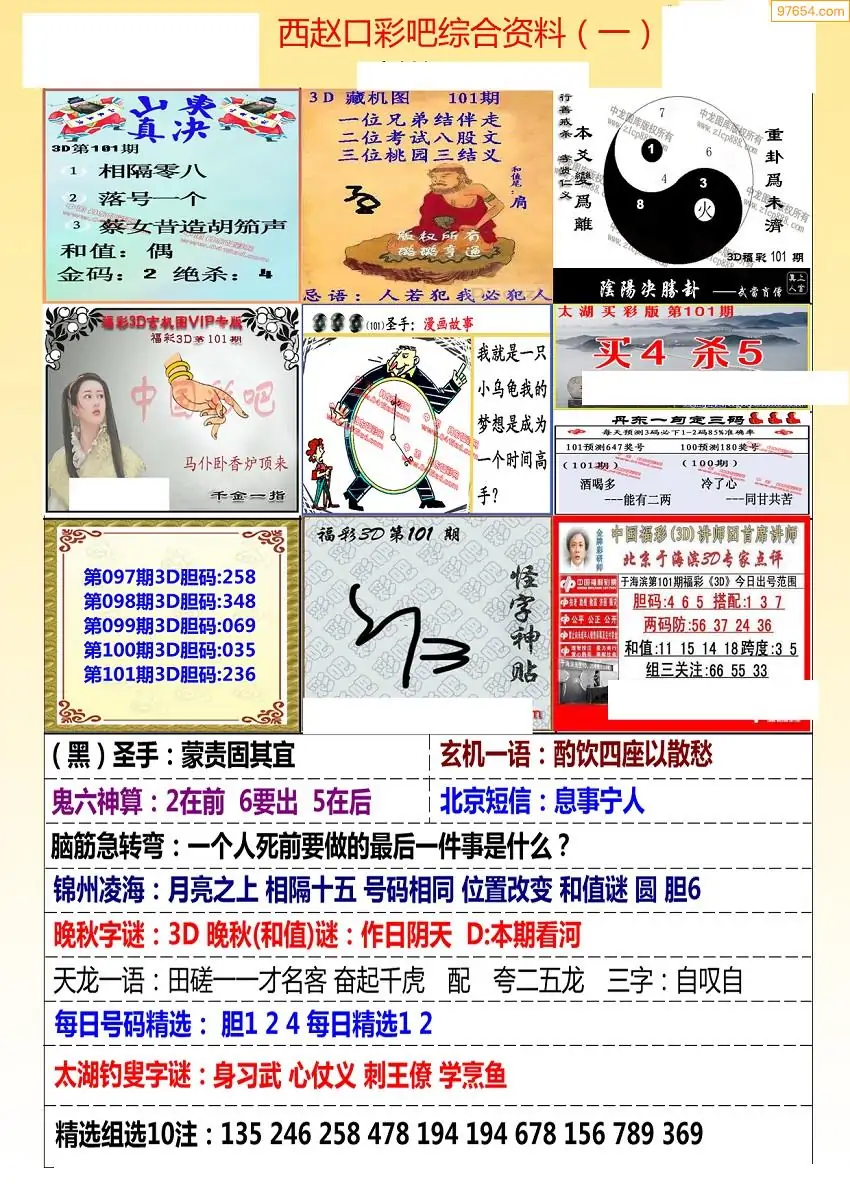 97654.com
西赵口彩吧综合资料（一）
山夷
真决
3D第101期
1 相隔零八
2 落号一个
3 蔡女昔造胡笳声
和值：偶
金码：2 绝杀：4
3D 藏机图 101期
一位兄弟结伴走
二位考试八股文
三位桃园三结义
和值尾：扃
版权所有
璐璐亨通
忌语：人若犯我必犯人
行善戒杀
本爻變爲離
重卦爲未濟
中龙图库版权所有
www.zlcp888.com
7
1
6
4
3
8
火
3D福彩 101 期
陰陽決勝卦 ——武當肖僧
福彩3D玄机图VIP专版
福彩3D第101期
中国彩吧
马仆卧香炉顶来
千金一指
(101)圣手：漫画故事
我就是一只
小乌龟我的
梦想是成为
一个时间高
手?
太湖买彩版 第101期
买4 杀5
丹东一句定三码
每天预测3码必下1-2码85%准确率
101预测647奖号 100预测180奖号
(101期) (100期)
酒喝多 冷了心
---能有二两 ---同甘共苦
第097期3D胆码:258
第098期3D胆码:348
第099期3D胆码:069
第100期3D胆码:035
第101期3D胆码:236
福彩3D第101 期
怪字神贴
中国福彩(3D)讲师团首席讲师
金牌彩研师
北京于海滨3D专家点评
中国福利彩票
于海滨第101期福彩《3D》今日出号范围
胆码:4 6 5 搭配:1 3 7
公平 公正 公开
两码防:56 37 24 36
和值:11 15 14 18跨度:3 5
组三关注:66 55 33
(黑)圣手：蒙责固其宜
玄机一语：酌饮四座以散愁
鬼六神算：2在前 6要出 5在后
北京短信：息事宁人
脑筋急转弯：一个人死前要做的最后一件事是什么？
锦州凌海：月亮之上 相隔十五 号码相同 位置改变 和值谜 圆 胆6
晚秋字谜：3D 晚秋(和值)谜：作日阴天 D:本期看河
天龙一语：田磋一一才名客 奋起千虎 配 夸二五龙 三字：自叹自
每日号码精选： 胆1 2 4 每日精选1 2
太湖钓叟字谜：身习武 心仗义 刺王僚 学烹鱼
精选组选10注：135 246 258 478 194 194 678 156 789 369